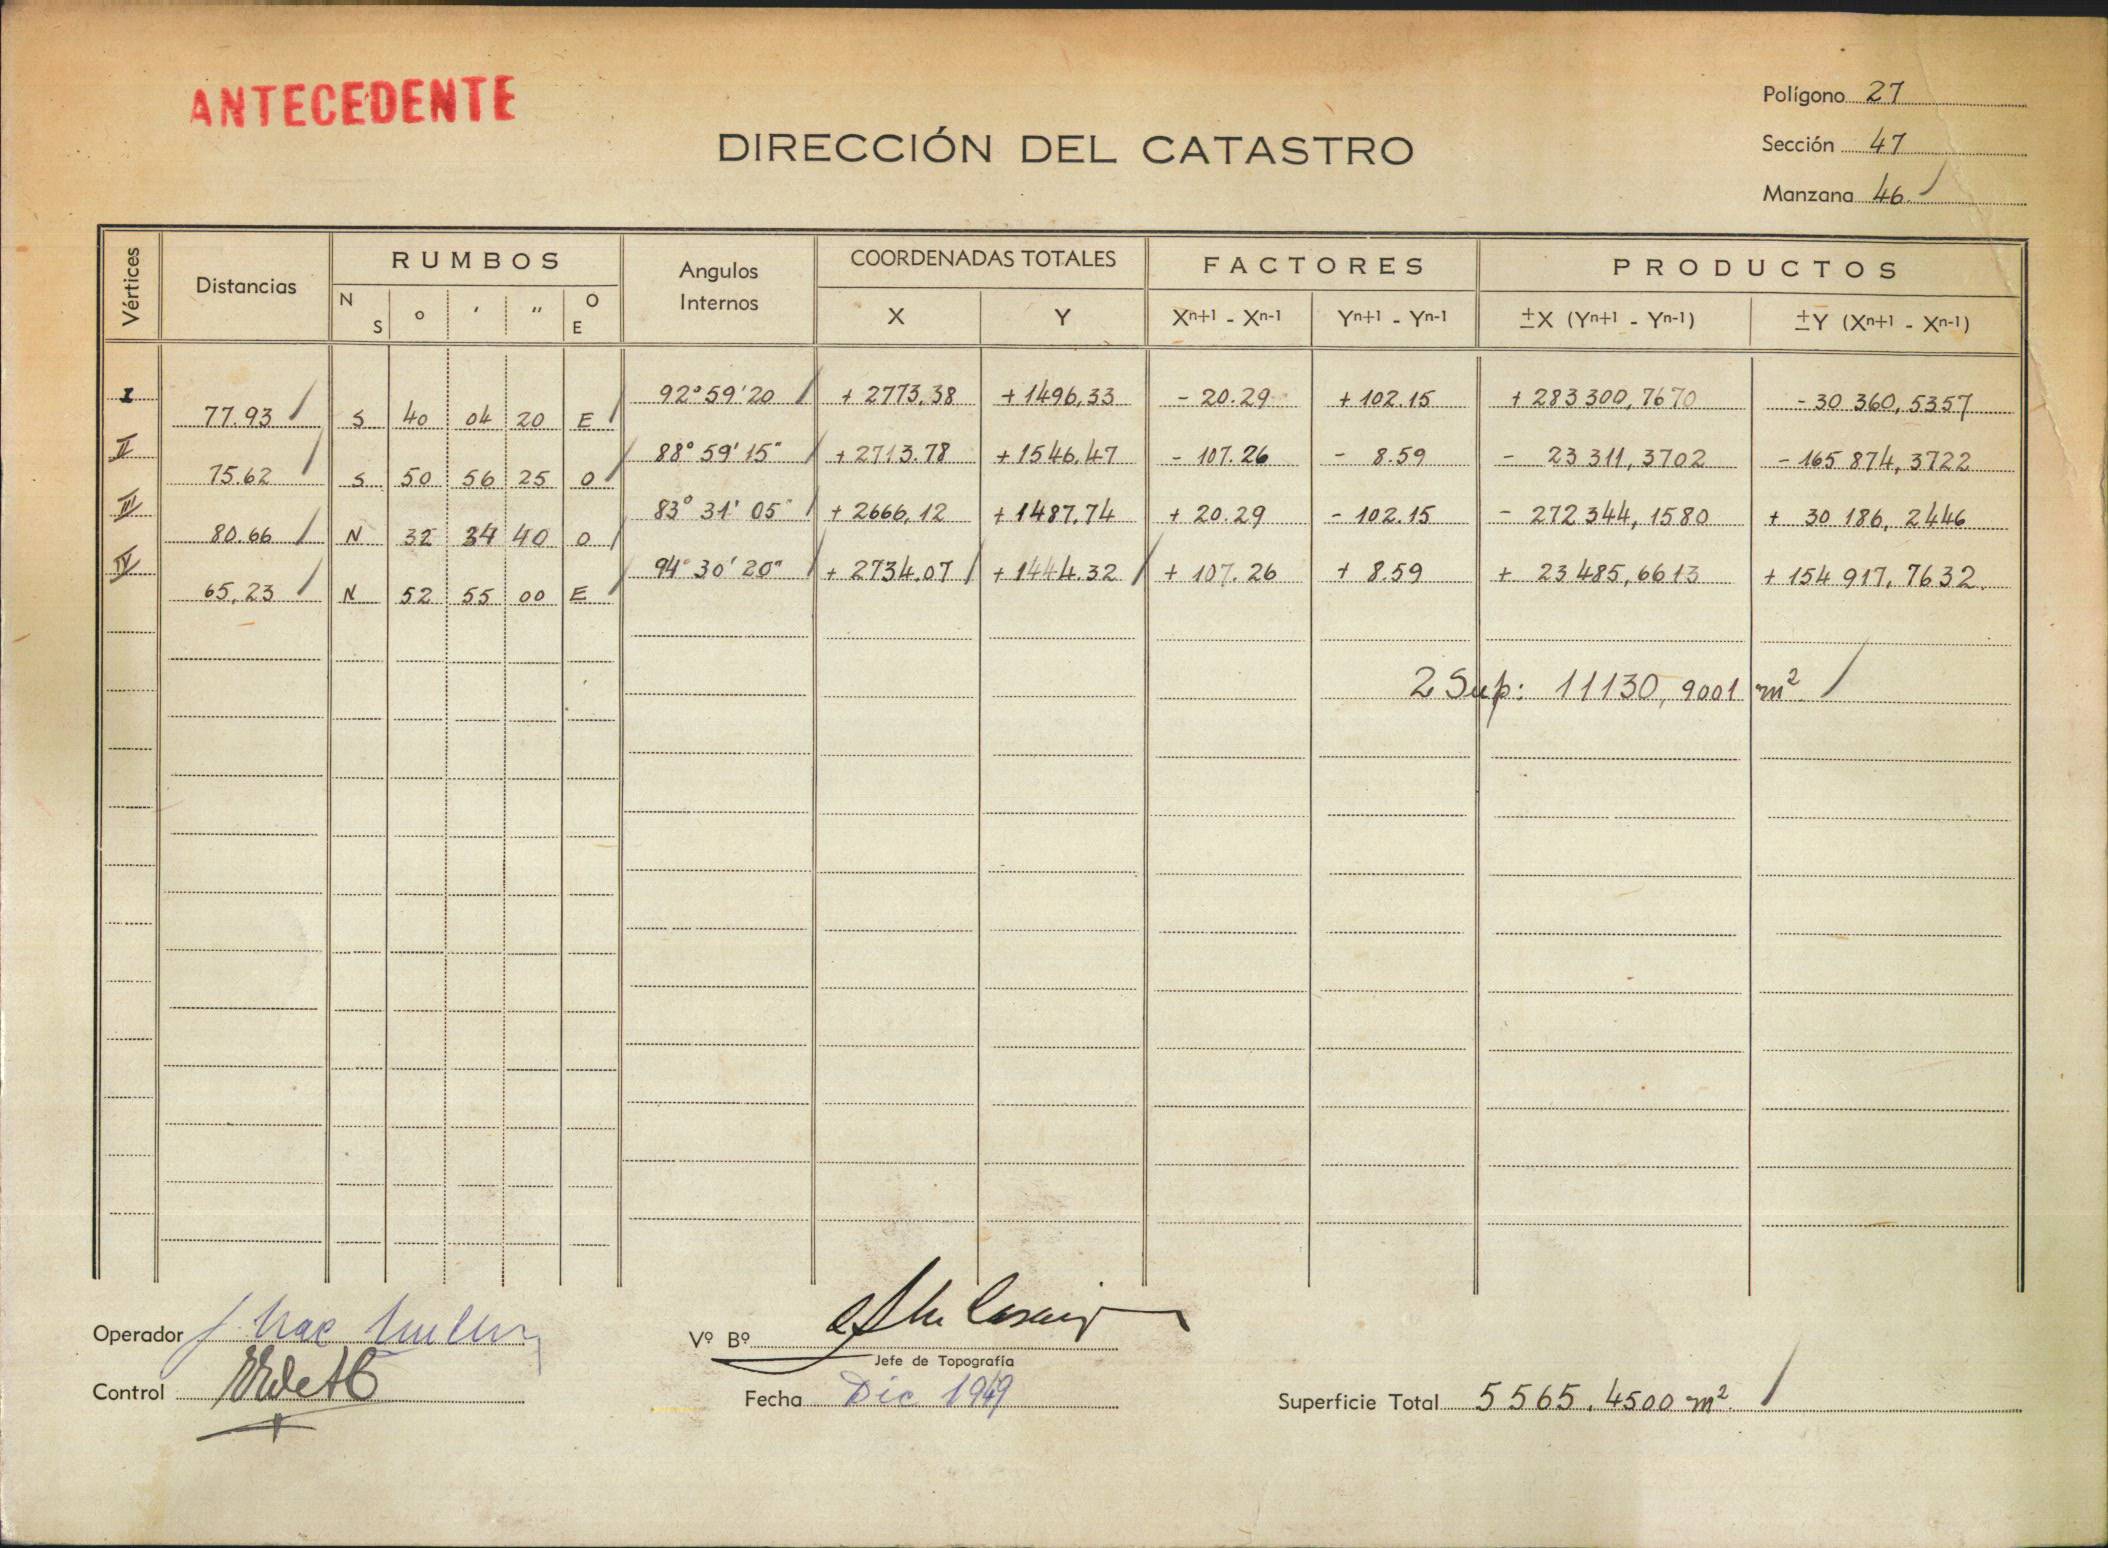 ANTECEDENTE
DIRECCIÓN DEL CATASTRO
Polígono 27
Sección 47
Manzana 46
Vértices Distancias RUMBOS Angulos Internos COORDENADAS TOTALES FACTORES PRODUCTOS
N S ° ' " O E X Y Xn+1 - Xn-1 Yn+1 - Yn-1 ±X (Yn+1 - Yn-1) ±Y (Xn+1 - Xn-1)
I 92°59'20 + 2773,38 +1496,33 - 20.29 + 102.15 + 283 300,7670 - 30 360,5357
77.93 S 40 04 20 E
II 88° 59' 15" + 2713.78 + 1546,47 - 107.26 - 8.59 - 23 311,3702 - 165 874,3722
75.62 S 50 56 25 O
III 83° 31' 05" + 2666,12 + 1487.74 + 20.29 - 102.15 - 272 344,1580 + 30 186,2446
80.66 N 32 34 40 O
IV 94° 30' 20" + 2734.07 + 1444.32 + 107.26 + 8.59 + 23 485,6613 + 154 917,7632
65,23 N 52 55 00 E
2 Sup: 11130,9001 m²
Operador
Vº Bº
Jefe de Topografía
Control
Fecha Dic 1949
Superficie Total 5565.4500 m²